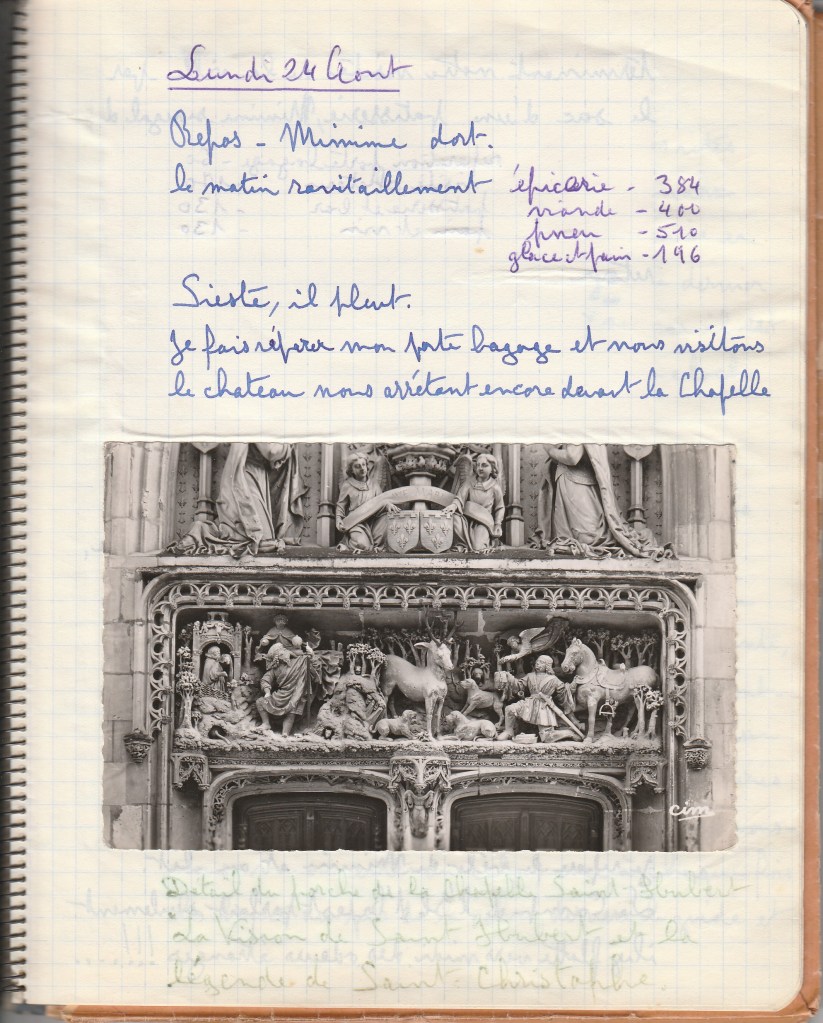 Lundi 24 Aout
Repos - Mimime dort.
le matin ravitaillement épicerie - 384
viande - 400
pneu - 510
glace et pain - 196
Sieste, il pleut.
Je fais réparer mon porte bagage et nous visitons
le chateau nous arrêtant encore devant la Chapelle
cim
Détail du porche de la Chapelle Saint-Hubert
La Vision de Saint Hubert et la
légende de Saint Christophe.